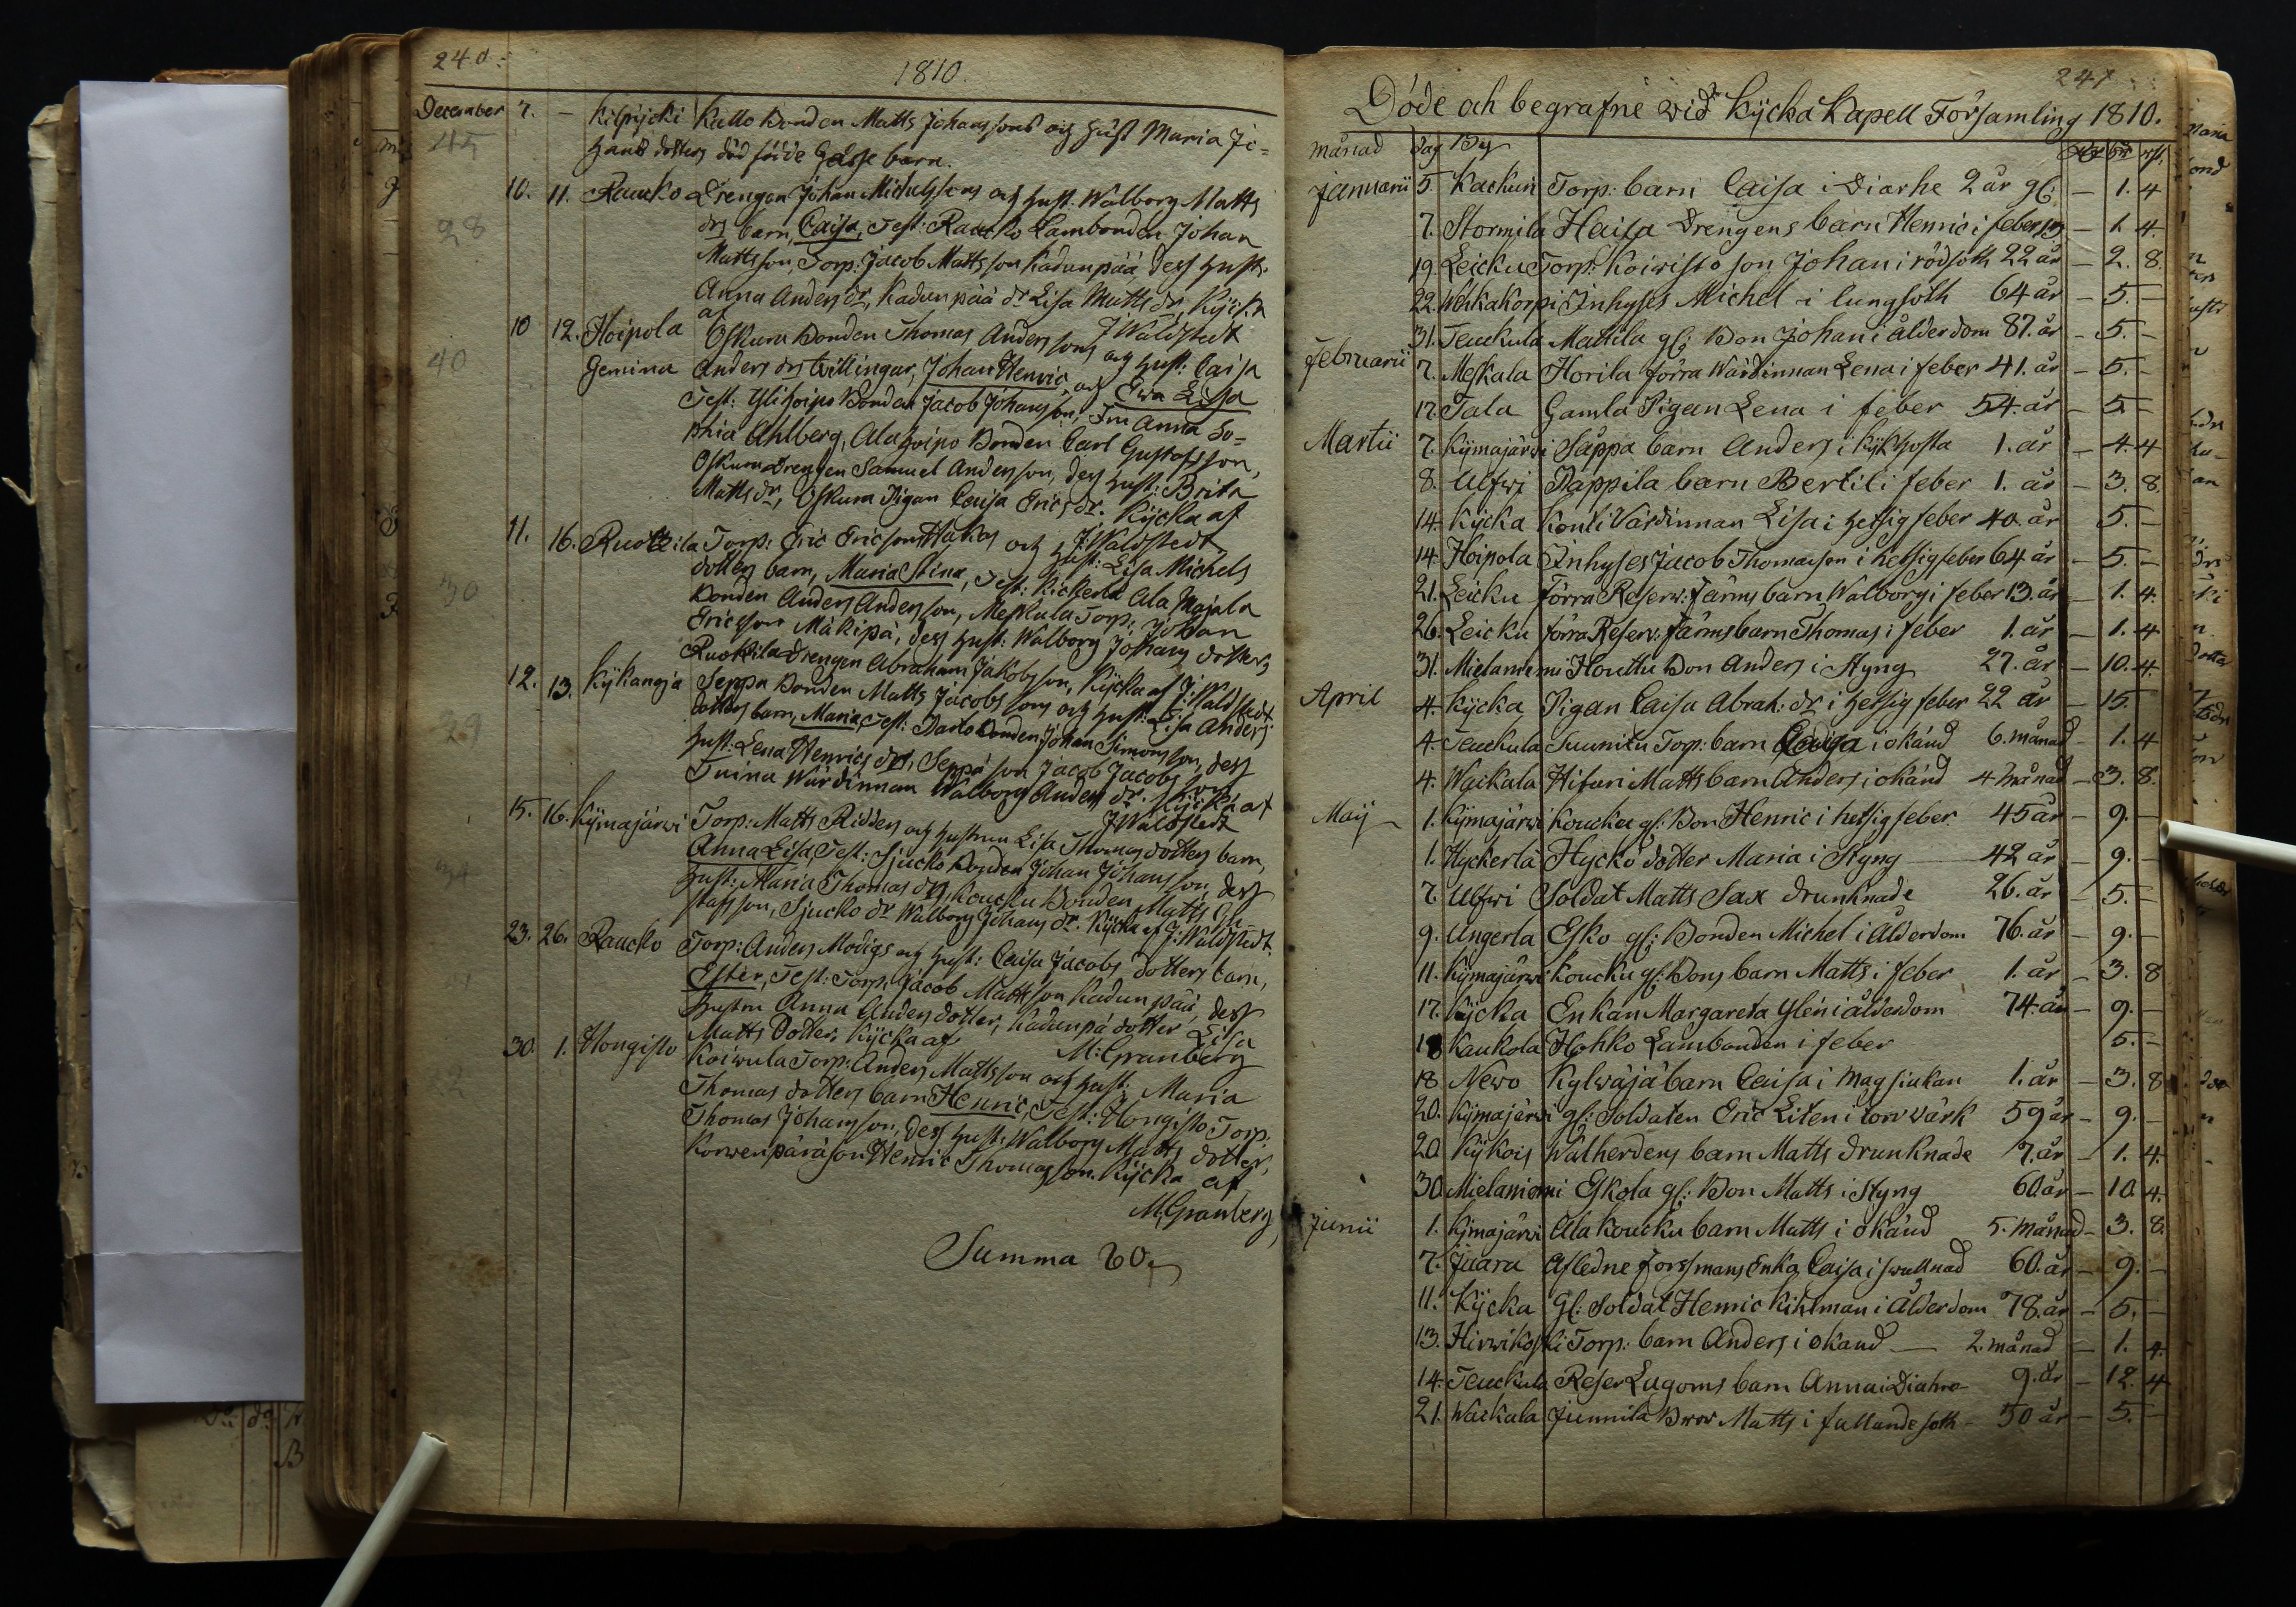 240.
1810.
December 7. – Kilpijcki Kallo Bonden Matts Johanssons och Hust Maria Jo=
hans dotters död född Gosse barn.
45
10. 11. Raucko Drengen Johan Michelssons och hust. Walborg Matts
drs barn, Caisa, Test: Raucko Lambonden Johan
28
Mattsson, Torp: Jacob Mattsson Kadunpää dess hust:
Anna Anders dr, Kadunpää dr Lisa Matts dr, Kÿcka
af J Waldstedt
10 12. Hoipola Oskura Bonden Thomas Anderssons och hust: Caisa
40
Gemina Anders drs tvillingar, Johan Henric, och Ewa Lisa
Test: Ylihoipo Bonden Jacob Johansson, Fru Anna So=
phia Ahlberg, Alahoipo Bonden Carl Gustafsson,
Oskura Drengen Samuel Andersson, dess hust: Brita
Matts dr, Oskura Pigan Caisa Erics dr. Kÿcka af
J: Waldstedt
11. 16. Ruokila Torp: Eric Ericsson Hakas och hust: Lisa Michels
dotters barn, Maria Stina, Test: Kickerla Ala Majala
30
Bonden Anders Andersson, Meskala Torp: Johan
Ericsson Mäkipä, dess hust: Walborg Johans dotter,
Ruokila Drengen Abraham Jakobsson, Kÿcka af J: Waldstedt
12. 13. Kykangja Seppa Bonden Matts Jacobssons och hust: Lisa Anders
29
dotters barn, Maria, Test: Parto Bonden Johan Simonsson, dess
hust: Lena Henrics dr, Seppä son Jacob Jacobsson
Tuina Wärdinnan Walborg Anders dr. Kÿcka af
J Waldstedt
15. 16. Kÿmajärwi Torp: Matts Ridders och hustrun Lisa Thomas dotters barn,
Anna Lisa, Test: Sjucko Bonden Johan Johansson, dess
34
hust: Maria Thomas dr, Koucku Bonden Matts Gu=
stafsson, Sjucko dr Walborg Johans dr. Kÿcka af J: Waldstedt
23. 26. Raucko Torp: Anders Modigs och hust: Caisa Jacobs dotters barn,
Ester, Test: Torp: Jacob Mattsson Kadunpää, dess
hustru Anna Anders dotter, Kadunpä dotter Lisa
Matts Dotter. Kÿcka af M: Granberg
30. 1. Hongisto Koiwula Torp: Anders Mattsson och hust: Maria
Thomas dotters barn Henric, Test: Hongisto Torp:
Thomas Johansson, dess hust: Walborg Matts dotter,
Korwenpärä son Henric Thomasson. Kÿcka af
M, Granberg
Summa 60.
241
Döde och begrafne wid Kÿcka Kapell Församling 1810.
månad dag By
Januarii 5. Kackuri Torp: barn Caisa i Diarhe 2 år gl: – 1. 4
7. Stormila Haisa Drengens barn Henric i feber 13 – 1. 4.
19. Leicku Torp: Koiwisto son Johan i rödsoth 22 år – 2. 8.
22. Wehkakorpi Inhyses Michel i lungsoth 64 år – 5. –
31. Teuckula Mattila gl: Bon Johan i ålderdom 87. år – 5. –
Februarii 7. Meskala Horila förra Wärdinnan Lena i feber 41. år – 5. –
17. Tala Gamla Pigan Lena i feber 54. år – 5. –
Martii 7. Kÿmajärwi Säppa barn Anders i Kikhosta 1. år – 4. 4
8. Ulfwi Pappila barn Bertil i feber 1. år – 3. 8.
14. Kÿcka Kouti Värdinnan Lisa i hetsig feber 40. år 5. –
14. Hoipola Inhyses Jacob Thomasson i hetsig feber 64 år – 5. –
21. Leicku förra Reserv: Färms barn Walborg i feber 13. år – 1. 4.
26. Leicku förra Reserv: Färms barn Thomas i feber 1. år – 1. 4
31. Mielaniemi Houttu Bon Anders i Styng 27. år – 10. 4.
April 4. Kÿcka Pigan Caisa Abrah: dr i hetsig feber 22 år – 15
4. Teuckula Suunitu Torp: barn Caisa i okänd 6. månad – 1. 4
4. Wackala Hituri Matts barn Anders i okänd 4 månad – 3. 8.
Maÿ 1. Kÿmajärwi Koucku gl: Bon Henric i hetsig feber 45 år – 9. –
1. Hyckerlä Hycko dotter Maria i Styng 42 år – 9. –
7. Ulfwi Soldat Matts Sax drunknade 26. år – 5. –
9. Ungerla Esko gl: Bonden Michel i Ålderdom 76. år – 9. –
11. Kÿmajärwi Koucku gl: Bons barn Matts i feber 1. år – 3. 8
17. Kÿcka Enkan Margareta Glén i ålderdom 74. år – 9. –
18 Kaukola Hohko Lambonden i feber 5. –
18 Newo Kylwäjä barn Caisa i Magsiukan 1. år – 3. 8
20. Kÿmajärwi gl: Soldaten Eric Liten i torvwärk 59 år – 9. –
20 Kÿkois Walherdens barn Matts drunknade 7. år – 1. 4.
30. Mielaniemi Eskola gl: Bon Matts i Styng 60. år – 10. 4.
Junii 1. Kÿmajärwi Ala Koucku barn Matts i okänd 5. månad – 3. 8.
7. Juara Afledne Forssmans Enka Caisa i swullnad 60. år – 9. –
11. Kÿcka Gl: Soldat Henric Kihlman i Ålderdom 78. år – 5. –
13. Hirwikoski Torp: barn Anders i okänd – 2. månad – 1. 4.
14. Teuckula Reser Lugoms barn Anna i Diahre 9. år – 12. 4
21. Wackala Junnila Bror Matts i fallandesoth – 50 år – 5. –